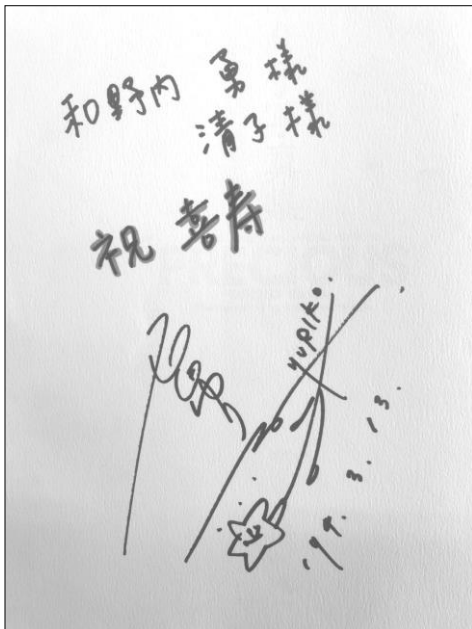 和野内 勇 様
清子 様
祝 喜寿
yupiko.
'99. 3. 13.